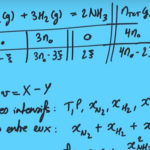 (g) + 3H₂(g) = 2NH₃ n_TOT(g
0 3n₀ 0 4n₀
-ξ 3n₀-3ξ 2ξ 4n₀-2
v = X - Y
intensifs : T, P, x_N₂, x_H₂, x
entre eux : x_N₂ + x_H₂ + x